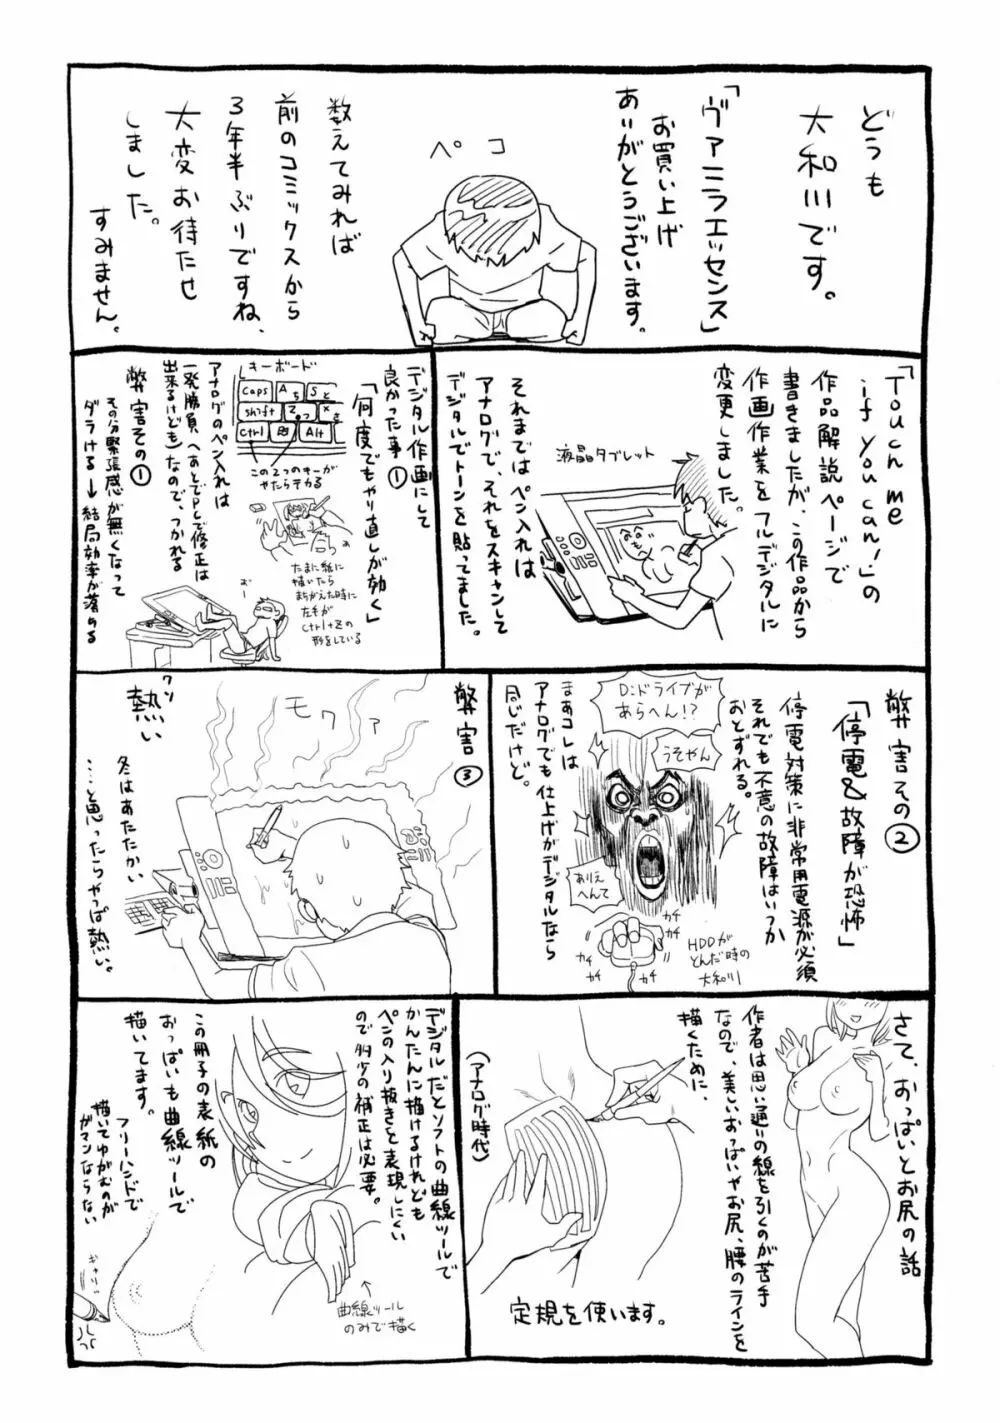 どうも
大和川です。
「ヴァニラエッセンス」
お買い上げ
ありがとうございます。
ペコ
数えてみれば
前のコミックスから
3年半ぶりですね、
大変お待たせ
しました。
すみません。
「Touch me
if you can!」の
作品解説ページで
書きましたが、この作品から
作画作業をフルデジタルに
変更しました。
液晶タブレット
それまではペン入れは
アナログで、それをスキャンして
デジタルでトーンを貼ってました。
デジタル作画にして
良かった事①
「何度でもやり直しが効く」
キーボード
Caps
A
ち
S
と
shift
Z
っ
X
さ
Ctrl
Alt
この2つのキーが
やたらテカる
たまに紙に
描いたら
まちがえた時に
左手が
Ctrl+Zの
形をしている
アナログのペン入れは
一発勝負(あとでトレで修正は
出来るけども)なので、つかれる
弊害その①
その分緊張感が無くなって
ダラける→結局効率が落める
弊害その②
「停電&故障が恐怖」
停電対策に非常用電源が必須
それでも不意の故障はいつか
おとずれる。
D:ドライブが
あらへん!?
うそやん
ありえ
へんて
カチ
カチ
カチ
カチ
カチ
HDDが
とんだ時の
大和川
まぁコレは
アナログでも仕上げがデジタルなら
同じだけど。
弊害③
モワァ
熱い
冬はあたたかい
……と思ったらやっぱ熱い。
さて、おっぱいとお尻の話
作者は思い通りの線を引くのが苦手
なので、美しいおっぱいやお尻、腰のラインを
描くために、
(アナログ時代)
定規を使います。
デジタルだとソフトの曲線ツールで
かんたんに描けるけれども
ペンの入り抜きを表現しにくい
ので多少の補正は必要。
曲線ツール
のみで描く
この冊子の表紙の
おっぱいも曲線ツールで
描いてます。
フリーハンドで
描いてゆがむのが
ガマンならない